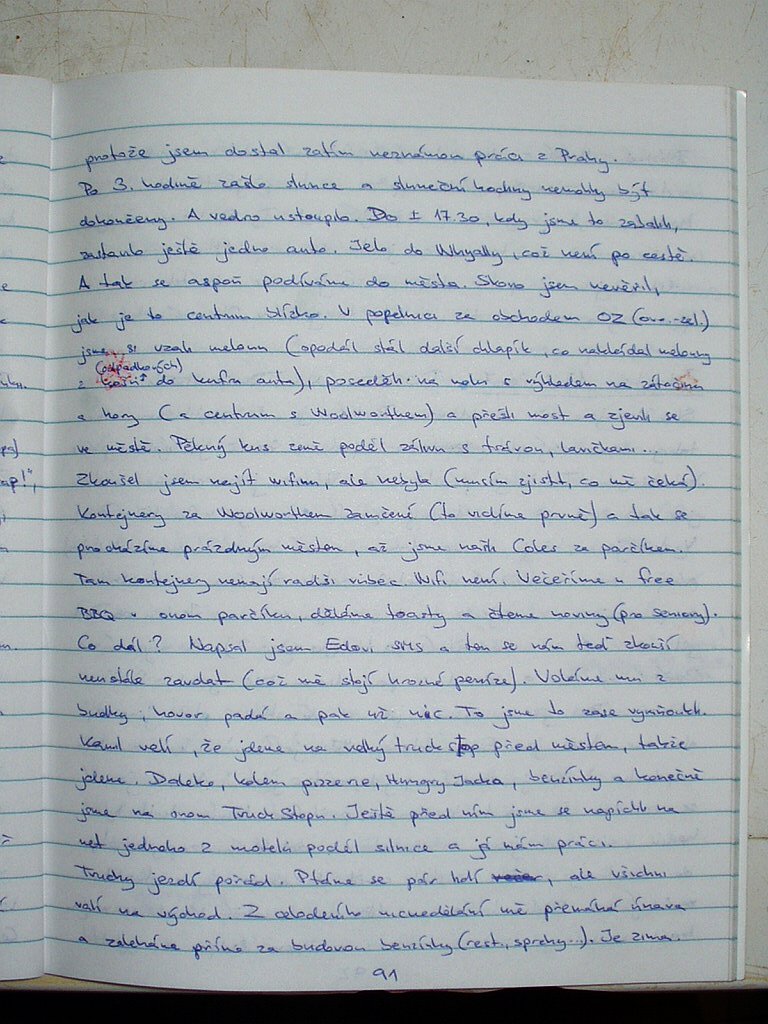 protože jsem dostal zatím neznámou práci z Prahy.
Po 3. hodině zašlo slunce a sluneční hodiny nemohly být
dokončeny. A vedro ustoupilo. Do ± 17.30, kdy jsme to zabalili,
zastavilo ještě jedno auto. Jelo do Whyally, což není po cestě.
A tak se aspoň podíváme do města. Skoro jsem nevěřil,
jak je to centrum blízko. V popelnici za obchodem OZ (ovo.-zel.)
jsme si vzali melouny (opodál stál další chlapík, co nakládal melouny
(odpadkových)
z košů do kufru auta), poseděli na molu s výhledem na zátočinu
a hory (a centrum s Woolworthem) a přešli most a zjevili se
ve městě. Pěkný kus země podél zálivu s trávou, lavičkami...
Zkoušel jsem najít wifinu, ale nebyla (musím zjistit, co mě čeká).
Kontejnery za Woolworthem zamčené (to vidíme prvně) a tak se
procházíme prázdným městem, až jsme našli Coles za parčíkem.
Tam kontejnery nemají radši vůbec. Wifi není. Večeříme u free
BBQ v onom parčíku, děláme toasty a čteme noviny (pro seniory).
Co dál? Napsal jsem Edovi SMS a ten se nám teď zkouší
neustále zavolat (což mě stojí hrozné peníze). Voláme mu z
budky, hovor padá a pak už nic. To jsme to zase vymňoukli.
Kamil velí, že jdeme na velký truckstop před městem, takže
jdeme. Daleko, kolem pizzerie, Hungry Jacka, benzínky a konečně
jsme na onom Truck Stopu. Ještě před ním jsme se napíchli na
net jednoho z motelů podél silnice a já mám práci.
Trucky jezdí pořád. Ptáme se pár lidí, ale všichni
valí na východ. Z celodenního nicnedělání mě přemáhá únava
a zaleháme přímo za budovou benzínky (rest., sprchy...). Je zima.
91